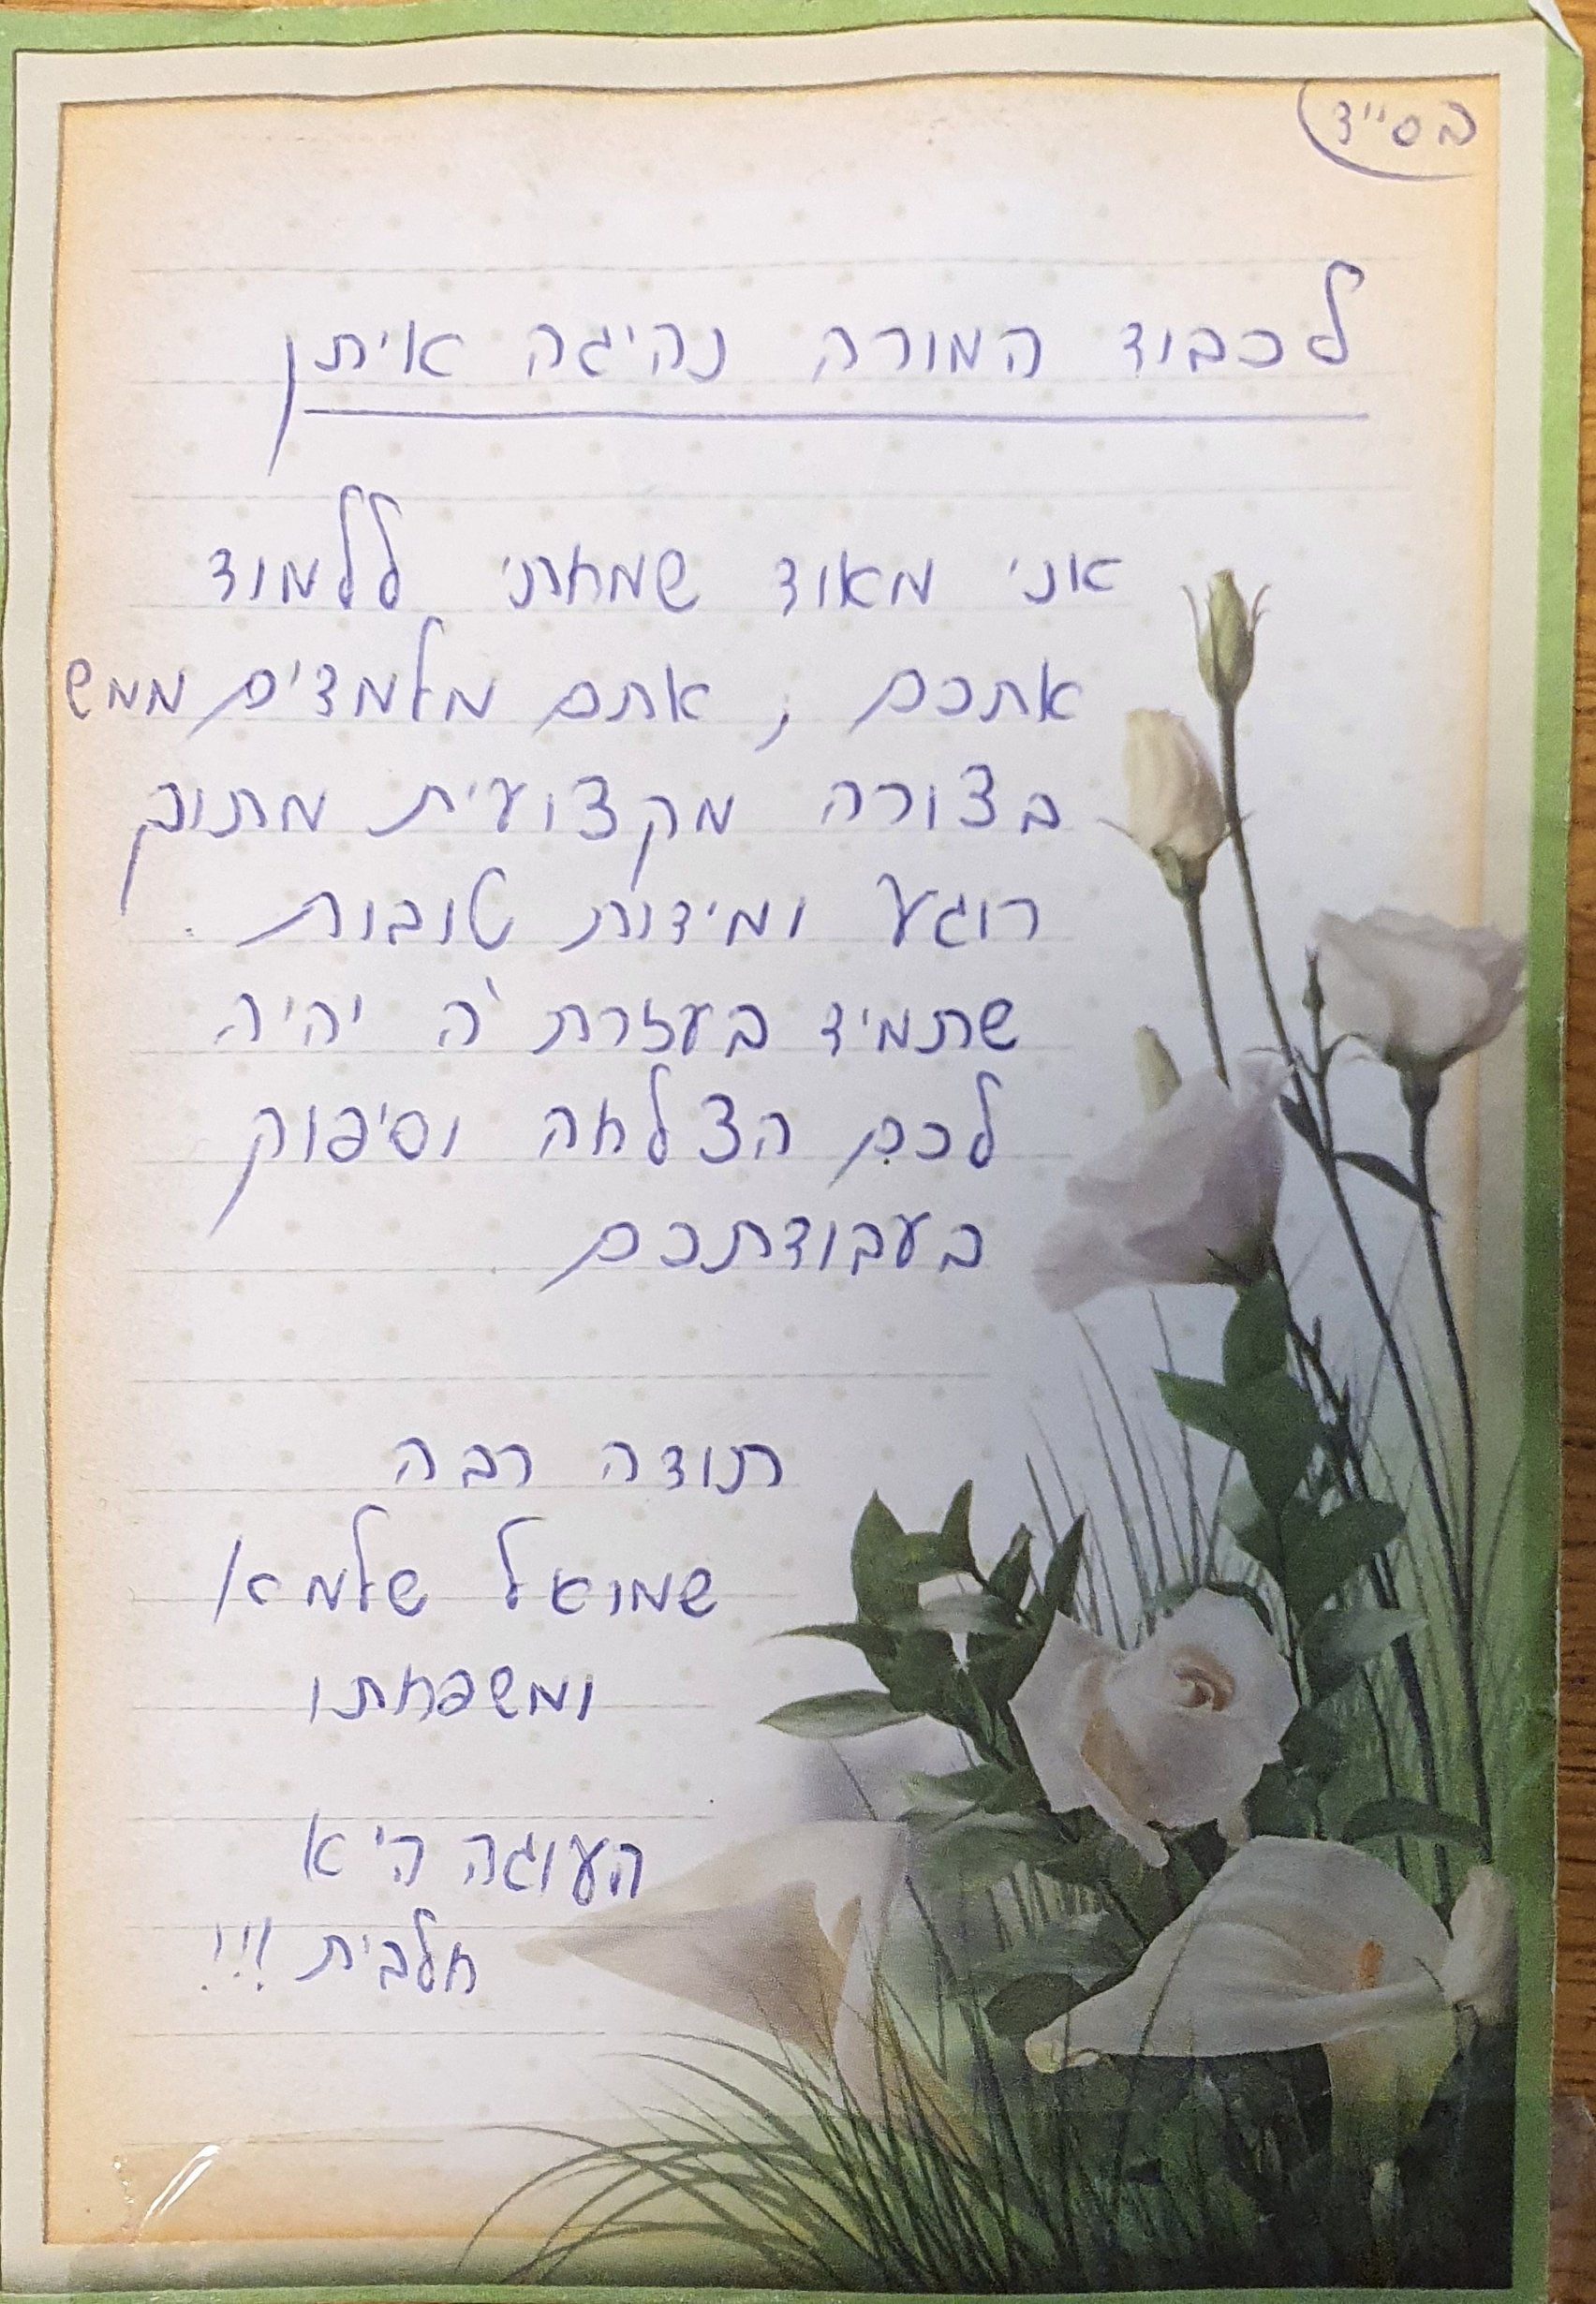 בס"ד
לכבוד המורה נהיגה איתן
אני מאוד שמחתי ללמוד
אתכם, אתם מלמדים ממש
בצורה מקצועית מתוך
רוגע ומידות טובות.
שתמיד בעזרת ה' יהיה
לכם הצלחה וסיפוק
בעבודתכם
תודה רבה
שמואל שלמאן
ומשפחתו
העוגה היא
חלבית!!!